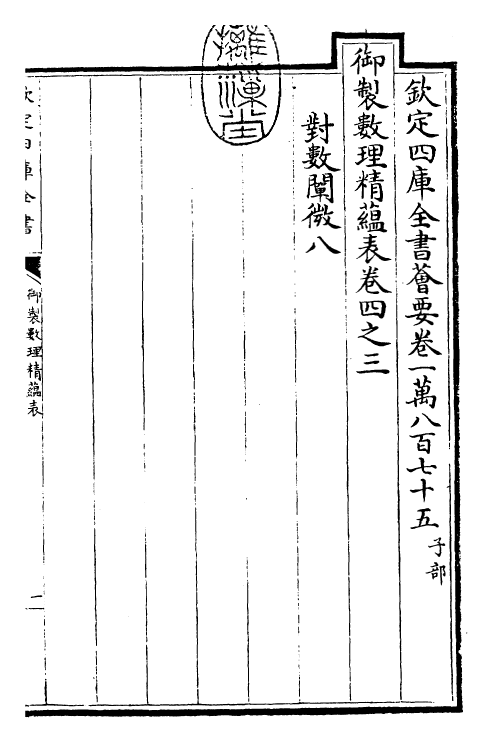 欽定四庫全書薈要卷一萬八百七十五 子部
御製數理精蘊表卷四之三
對數闡微八
欽定四庫全書
御製數理精蘊表